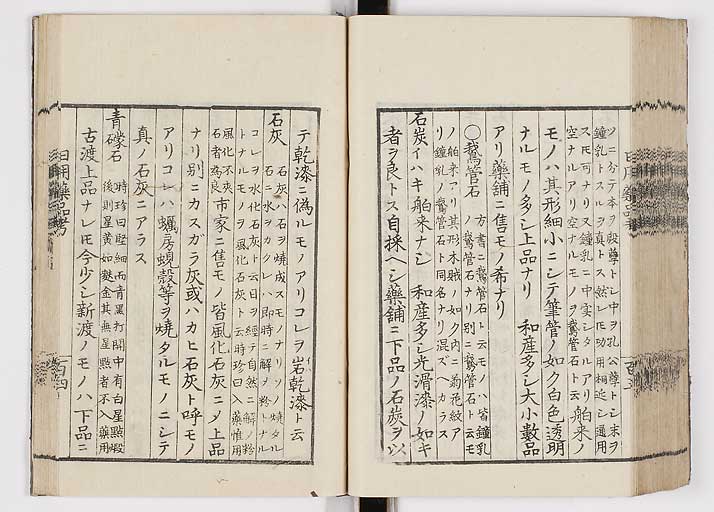 ソニ分テ本ヲ殷孽トシ中ヲ孔公孽トシ末ヲ
鐘乳トスルヲ真トス然レ𪜈功用相近シ通用
スモ可ナリ又鐘乳ニ中実シタルアリ舶来ノ
空ナルアリ空ナルモノヲ鵞管石ト云
モノハ其形細小ニシテ筆管ノ如ク白色透明
ナルモノ多シ上品ナリ 和産多シ大小數品
アリ藥舗ニ售モノ希ナリ
〇鵞管石 方書ニ鵞管石ト云モノハ皆鐘乳
ノ鵞管石ナリ別ニ鵞管石ト云モ
ノ舶来アリ其形木賊ノ如ク内ニ菊花紋ア
リ鐘乳ノ鵞管石ト同名ナリ混ズベカラス
石炭イハキ舶来ナシ 和産多シ光滑漆ノ如キ
者ヲ良トス自採ヘシ藥舗ニ下品ノ石炭ヲ以
テ乾漆ニ偽ルモノアリコレヲ岩乾漆ト云
石灰 石灰ハ石ヲ燒成スモノナリソノ燒タル
石ニ水ヲカクレハ即時ニ解ノ粉トナル
コレヲ水化石灰ト云日ヲ經テ自然ニ解ノ粉
トナルモノヲ風化石灰ト云時珍曰入藥惟用
風化不夾
石者為良 市家ニ售モノ皆風化石灰ニメ上品
ナリ別ニカスガラ灰或ハカヒ石灰ト呼モノ
アリコレハ蠣房蜆殻等ヲ燒タルモノニシテ
真ノ石灰ニアラス
青礞石 時珍曰堅細而青黒打開中有白星點煅
後則星黄如麩金其無星點者不入藥用
古渡上品ナレ𪜈今少シ新渡ノモノハ下品ニ
日用藥品考
百四